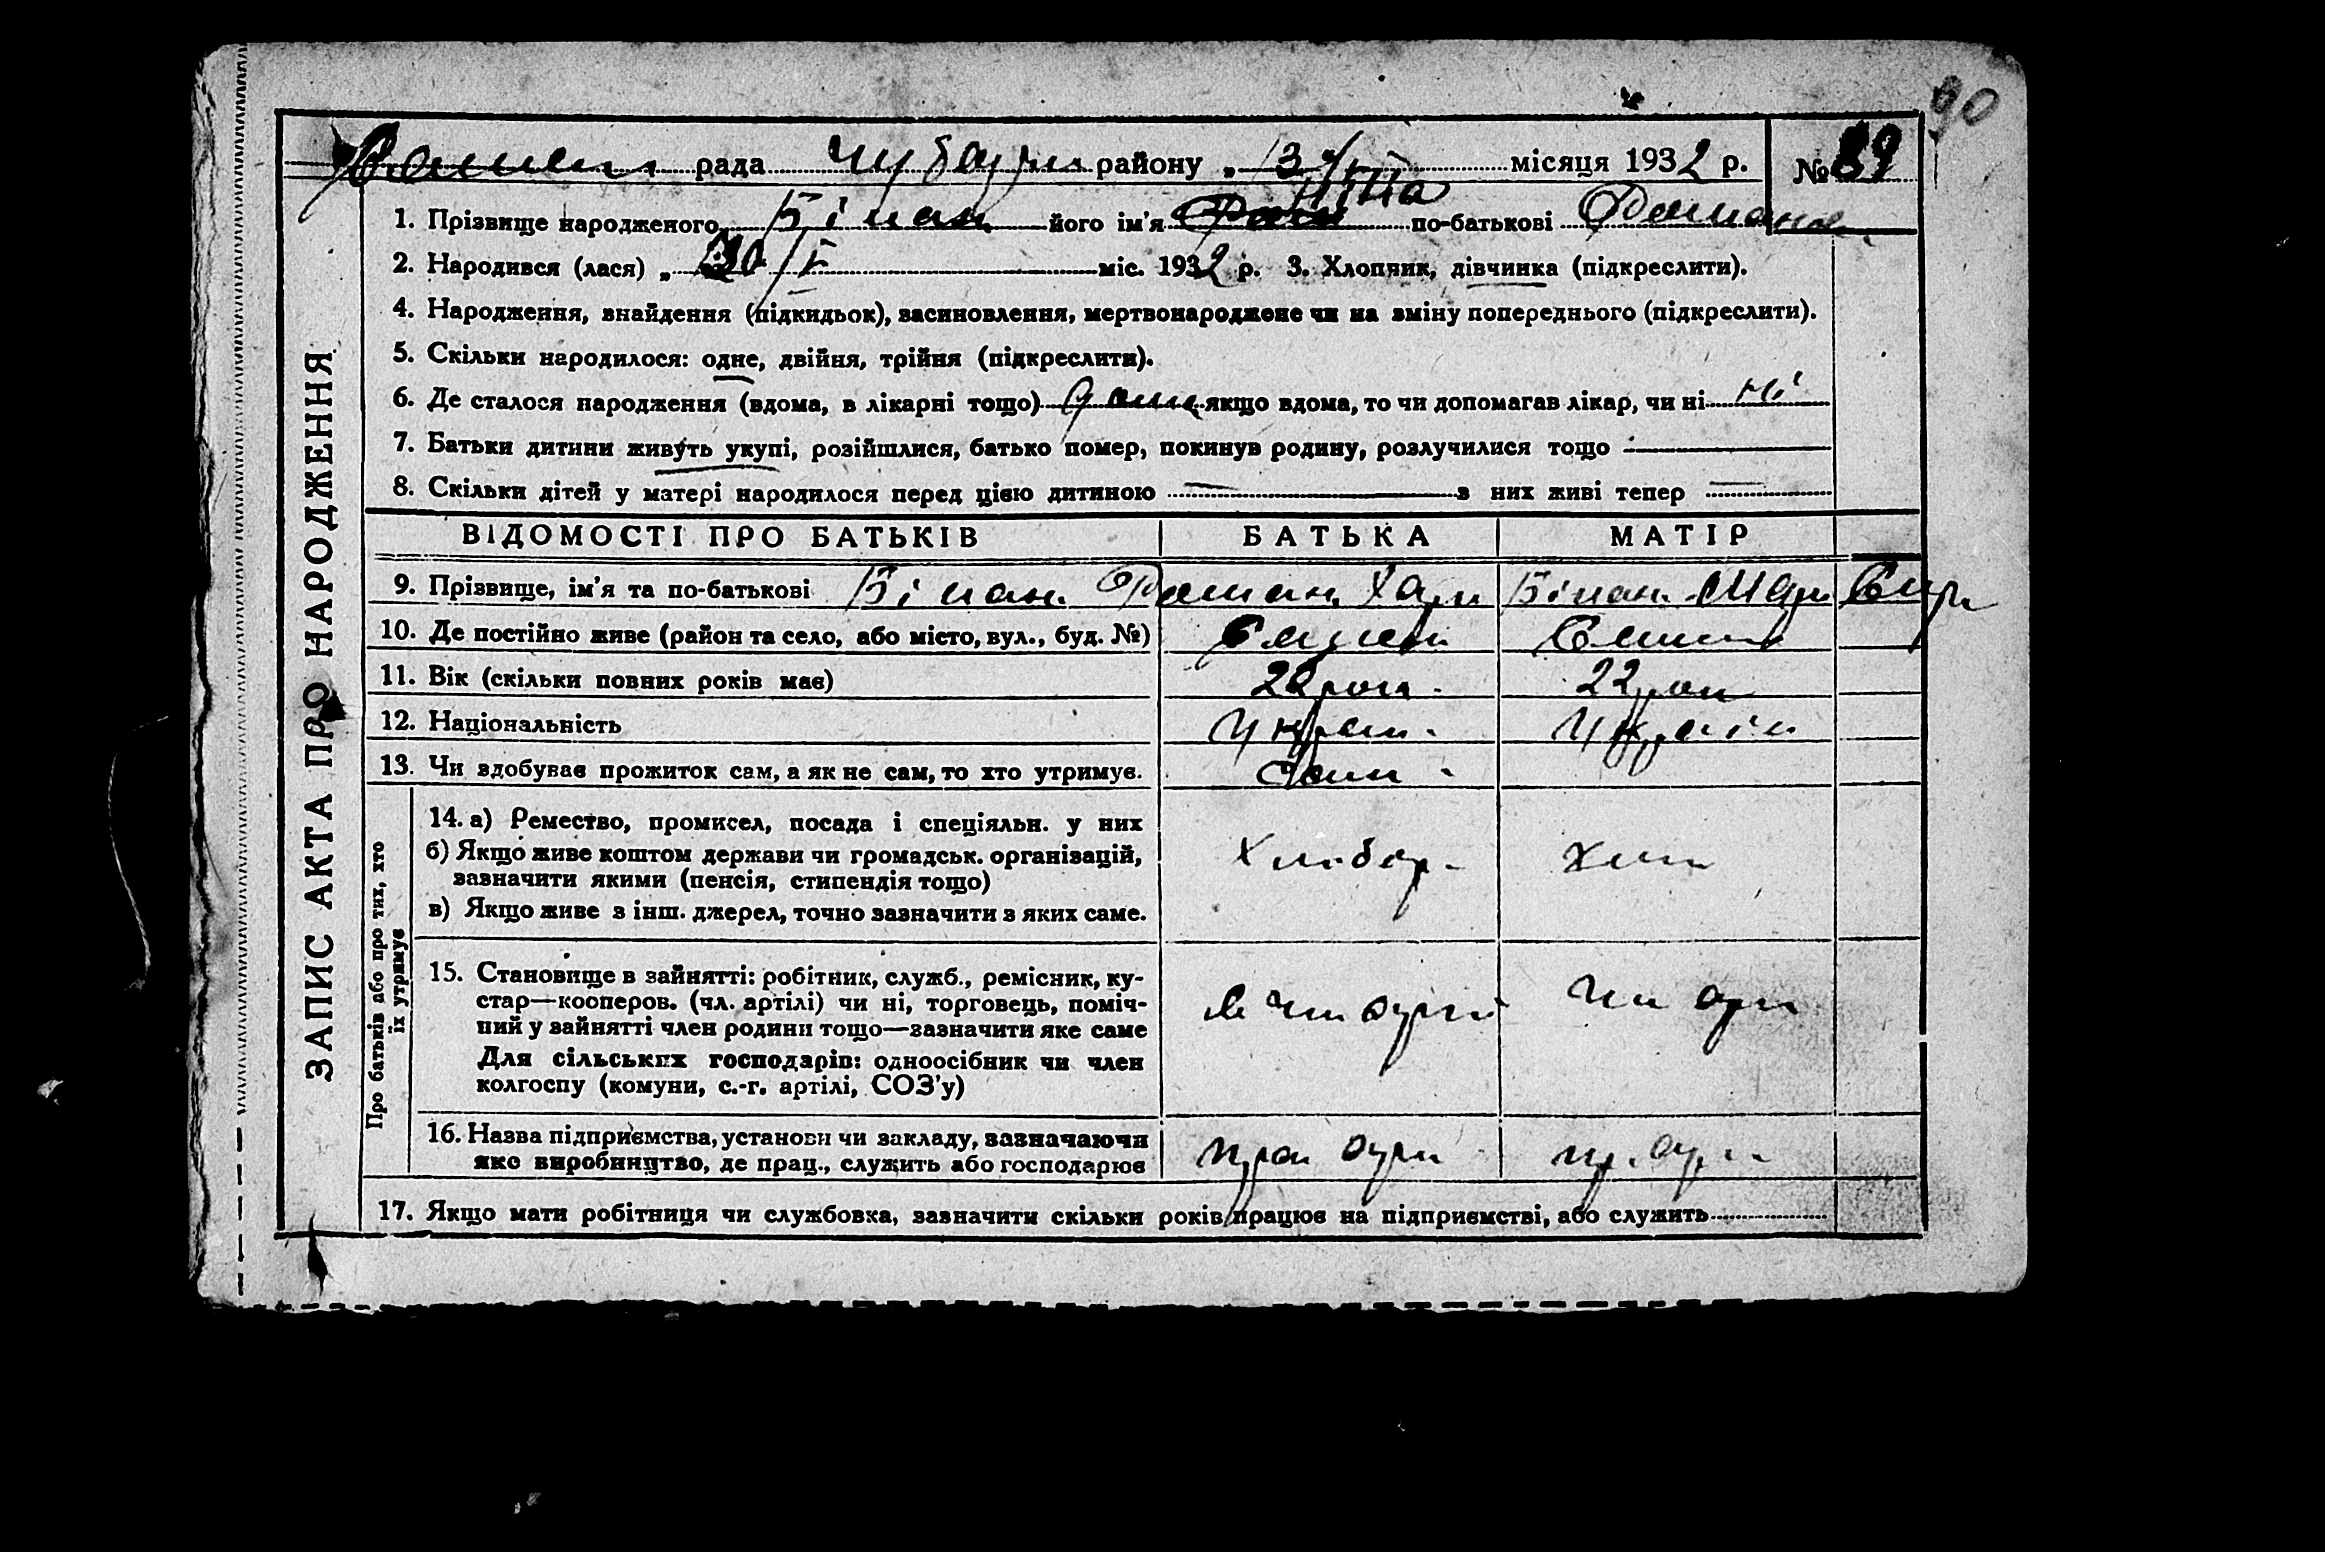 90
рада Чубарі району „ 13 / місяця 1932 р. № 89
1. Прізвище народженого Біпан його ім'я Ніна по-батькові
2. Народився (лася) „ 20/І міс. 1932 р. 3. Хлопчик, дівчинка (підкреслити).
4. Народження, знайдення (підкидьок), засиновлення, мертвонароджене чи на зміну попереднього (підкреслити).
5. Скільки народилося: одне, двійня, трійня (підкреслити).
6. Де сталося народження (вдома, в лікарні тощо) дома якщо вдома, то чи допомагав лікар, чи ні ні
7. Батьки дитини живуть укупі, розійшлися, батько помер, покинув родину, розлучилися тощо —
8. Скільки дітей у матері народилося перед цією дитиною — з них живі тепер —
ЗАПИС АКТА ПРО НАРОДЖЕННЯ
ВІДОМОСТІ ПРО БАТЬКІВ БАТЬКА МАТІР
9. Прізвище, ім'я та по-батькові Біпан Хари Біпан Мари
10. Де постійно живе (район та село, або місто, вул., буд. №)
11. Вік (скільки повних років має) 22 роки 22 рок
12. Національність Украін. Україн
13. Чи здобуває прожиток сам, а як не сам, то хто утримує. Сам
Про батьків або про тих, хто їх утримує
14. а) Ремество, промисел, посада і спеціяльн. у них
б) Якщо живе коштом держави чи громадськ. організацій,
зазначити якими (пенсія, стипендія тощо)
в) Якщо живе з інш. джерел, точно зазначити з яких саме.
Хлібор.
15. Становище в зайнятті: робітник, служб., ремісник, ку-
стар—кооперов. (чл. артілі) чи ні, торговець, поміч-
ний у зайнятті член родини тощо—зазначити яке саме
Для сільських господарів: одноосібник чи член
колгоспу (комуни, с.-г. артілі, СОЗ'у)
16. Назва підприємства, установи чи закладу, зазначаючи
яке виробництво, де прац., служить або господарює
17. Якщо мати робітниця чи службовка, зазначити скільки років працює на підприємстві, або служить